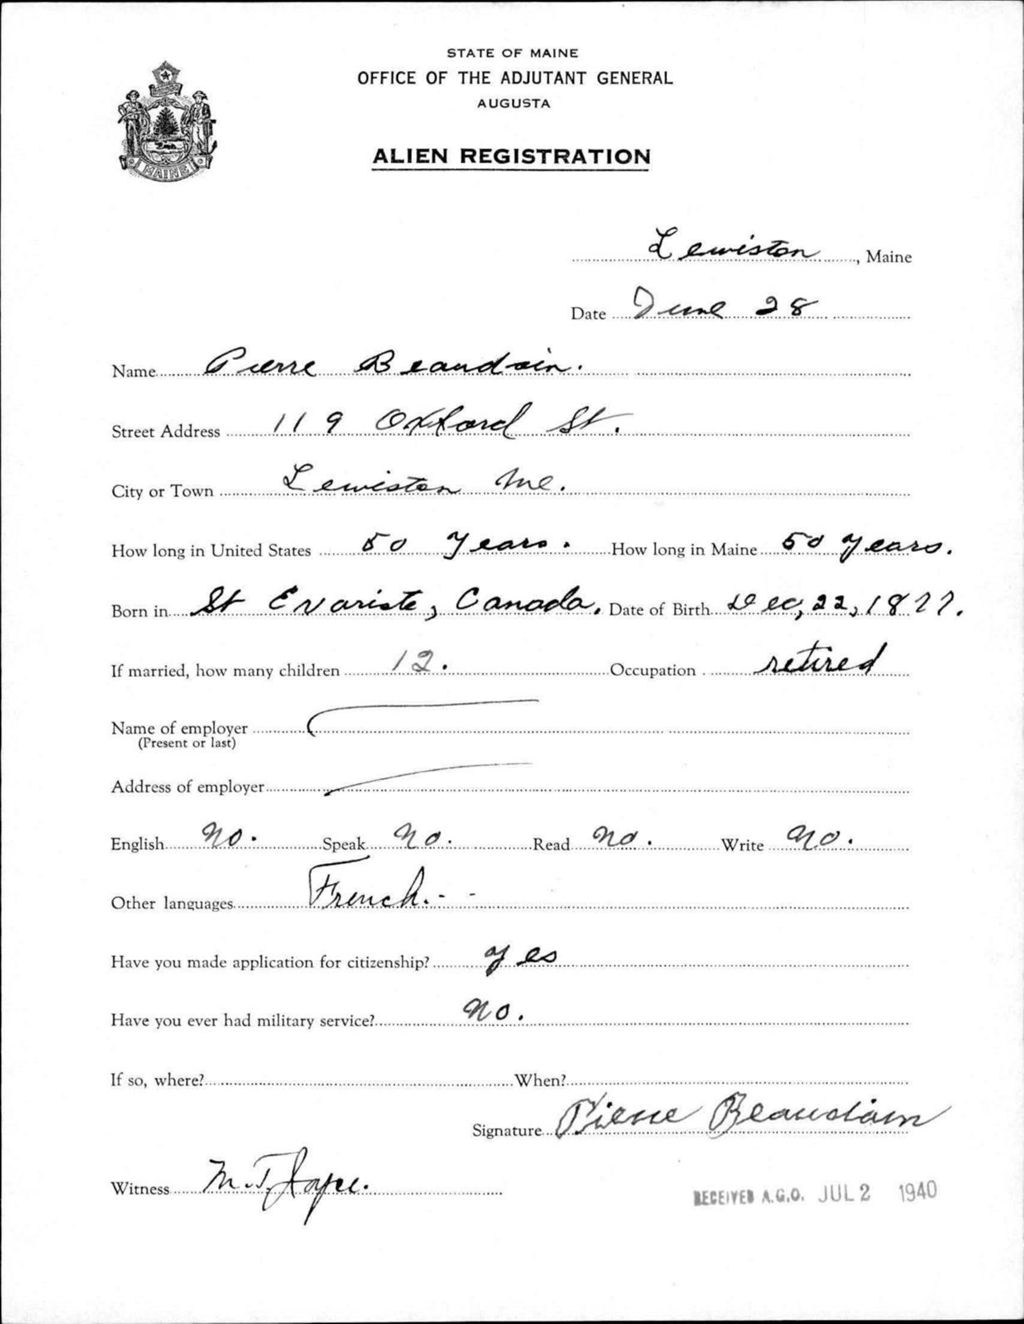 STATE OF MAINE
OFFICE OF THE ADJUTANT GENERAL
AUGUSTA
ALIEN REGISTRATION
MAINE
Lewiston, Maine
Date June 28
Name Pierre Beaudoin.
Street Address 119 Oxford St.
City or Town Lewiston Me.
How long in United States 50 Years. How long in Maine 50 years.
Born in St Evariste, Canada. Date of Birth Dec, 22, 1877.
If married, how many children 12. Occupation retired
Name of employer
(Present or last)
Address of employer
English No. Speak No. Read No. Write No.
Other languages French.- -
Have you made application for citizenship? Yes
Have you ever had military service? No.
If so, where? When?
Signature Pierre Beaudoin
Witness M.T. Joyce.
RECEIVED A.G.O. JUL 2 1940